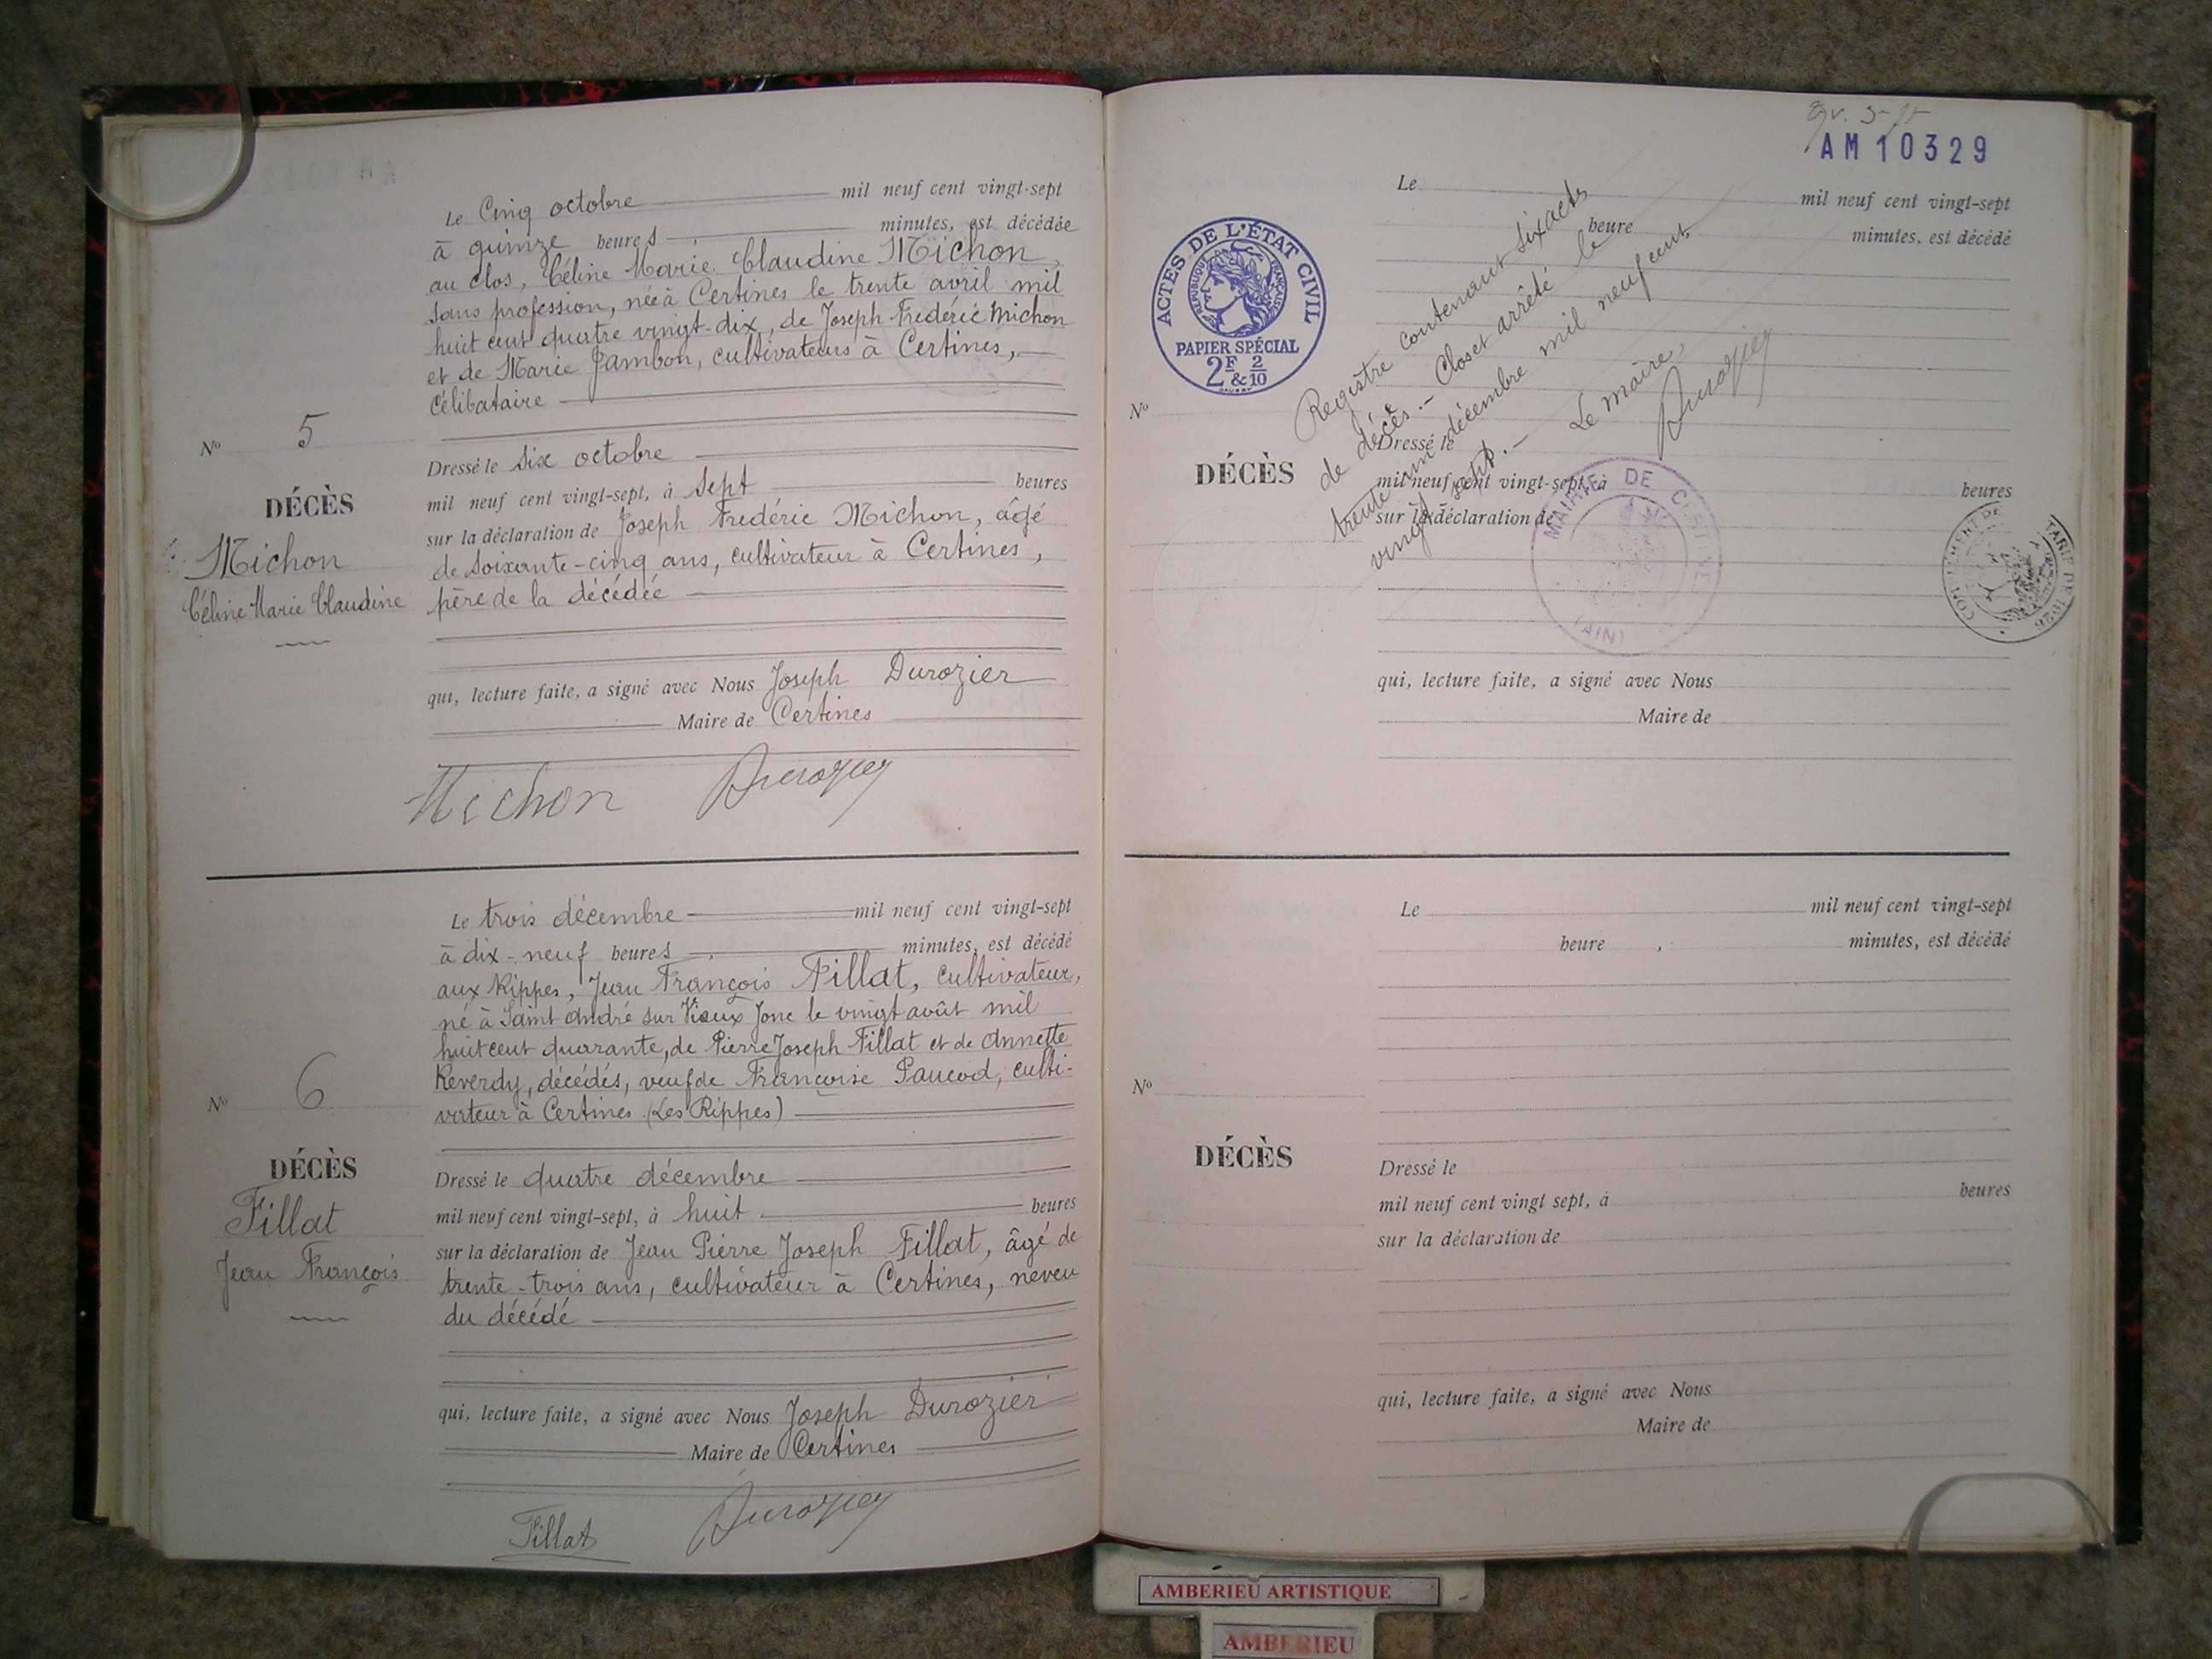 Le Cinq octobre mil neuf cent vingt-sept
à quinze heures minutes, est décédée
au Clos, Céline Marie Claudine Michon,
sans profession, née à Certines le trente avril mil
huit cent quatre vingt-dix, de Joseph Frédéric Michon
et de Marie Jambon, cultivateurs à Certines,
Célibataire
No 5
Dressé le six octobre
mil neuf cent vingt-sept, à sept heures
DÉCÈS
sur la déclaration de Joseph Frédéric Michon, âgé
Michon
de soixante-cinq ans, cultivateur à Certines,
Céline Marie Claudine
père de la décédée
qui, lecture faite, a signé avec Nous Joseph Durozier
Maire de Certines
Michon Durozier
Le trois décembre mil neuf cent vingt-sept
à dix-neuf heures minutes, est décédé
aux Rippes, Jean François Fillat, cultivateur,
né à Saint André sur Vieux Jonc le vingt août mil
huit cent quarante, de Pierre Joseph Fillat et de Annette
Reverdy, décédés, veuf de Françoise Paucod, culti-
vateur à Certines (Les Rippes)
No 6
DÉCÈS
Dressé le quatre décembre
Fillat
mil neuf cent vingt-sept, à huit heures
Jean François
sur la déclaration de Jean Pierre Joseph Fillat, âgé de
trente-trois ans, cultivateur à Certines, neveu
du décédé
qui, lecture faite, a signé avec Nous Joseph Durozier
Maire de Certines
Fillat Durozier
AM 10329
Le mil neuf cent vingt-sept
heure minutes, est décédé
ACTES DE L'ÉTAT CIVIL
RÉPUBLIQUE FRANÇAISE
PAPIER SPÉCIAL
2F & 2/10
Registre contenant six actes
de décès.- Clos et arrêté le
trente un décembre mil neuf cent
vingt sept.-
Le maire,
Durozier
No
DÉCÈS
Dressé le
mil neuf cent vingt-sept, à heures
sur la déclaration de
MAIRIE DE CERTINES
(AIN)
TARIF DE 1926
qui, lecture faite, a signé avec Nous
Maire de
Le mil neuf cent vingt-sept
heure minutes, est décédé
No
DÉCÈS
Dressé le
mil neuf cent vingt sept, à heures
sur la déclaration de
qui, lecture faite, a signé avec Nous
Maire de
AMBERIEU ARTISTIQUE
AMBERIEU